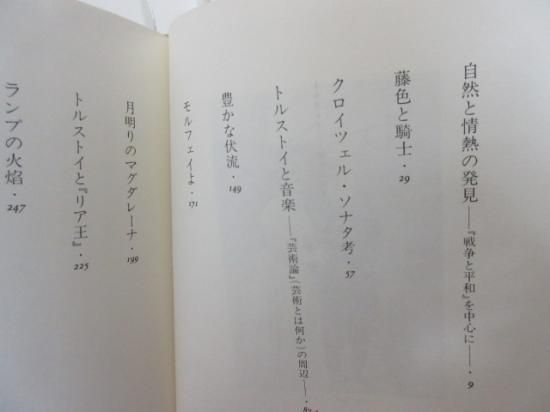 自然と情熱の発見——『戦争と平和』を中心に——・9
藤色と騎士・29
クロイツェル・ソナタ考・57
トルストイと音楽——『芸術論』(芸術とは何か)の周辺——・
豊かな伏流・149
モルフェイよ・171
月明りのマグダレーナ・199
トルストイと『リア王』・225
ランプの火焰・247